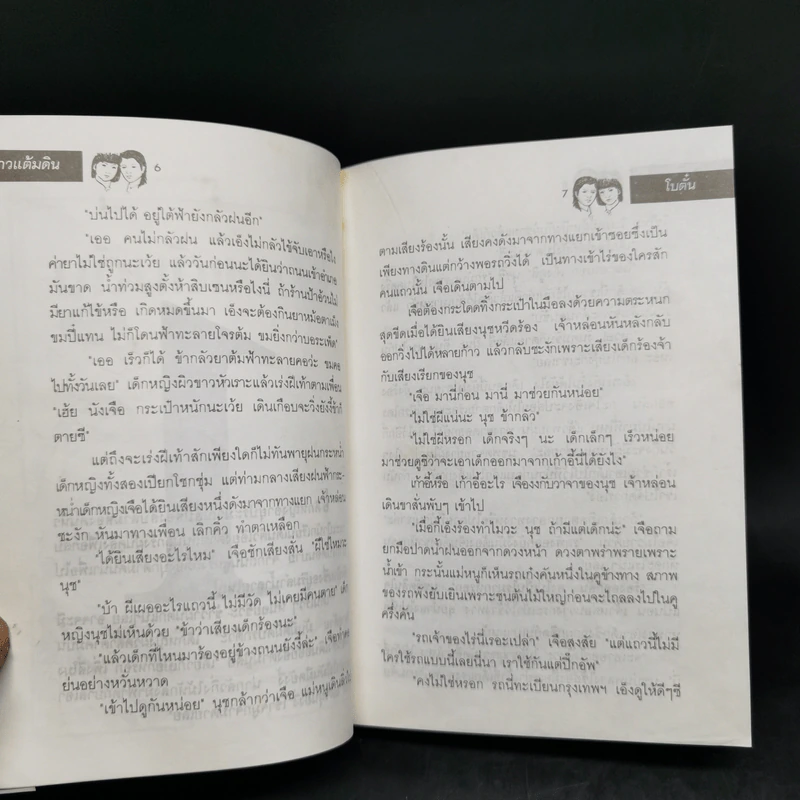 าวแต้มดิน
6
"บ่นไปได้ อยู่ใต้ฟ้ายังกลัวฝนอีก"
"เออ คนไม่กลัวฝน แล้วเอ็งไม่กลัวไข้จับเอาหรือไง
ค่ายาไม่ใช่ถูกนะเว้ย แล้ววันก่อนนะได้ยินว่าถนนเข้าอำเภอ
มันขาด น้ำท่วมสูงตั้งห้าสิบเซนหรือไงนี่ ถ้าร้านป้าอ้วนไม่
มียาแก้ไข้หรือ เกิดหมดขึ้นมา เอ็งจะต้องกินยาหม้อตาเม้ง
ขมปี๋แทน ไม่ก็โดนฟ้าทะลายโจรต้ม ขมยิ่งกว่าบอระเพ็ด"
"เออ เร็วก็ได้ ข้ากลัวยาต้มฟ้าทะลายคอว่ะ ขมคอ
ไปทั้งวันเลย" เด็กหญิงผิวขาวหัวเราะแล้วเร่งฝีเท้าตามเพื่อน
"เฮ้ย นังเจือ กระเป๋าหนักนะเว้ย เดินเกือบจะวิ่งยังงี้ข้าก็
ตายซี"
แต่ถึงจะเร่งฝีเท้าสักเพียงใดก็ไม่ทันพายุฝนกระหน่ำ
เด็กหญิงทั้งสองเปียกโชกชุ่ม แต่ท่ามกลางเสียงฝนฟ้ากระ-
หน่ำเด็กหญิงเจือได้ยินเสียงหนึ่งดังมาจากทางแยก เจ้าหล่อน
ชะงัก หันมาทางเพื่อน เลิกคิ้ว ทำตาเหลือก
"ได้ยินเสียงอะไรไหม" เจือชักเสียงสั่น "ผีใช่ไหมวะ
นุช"
"บ้า ผีเผออะไรแถวนี้ ไม่มีวัด ไม่เคยมีคนตาย" เด็ก
หญิงนุชไม่เห็นด้วย "ข้าว่าเสียงเด็กร้องนะ"
"แล้วเด็กที่ไหนมาร้องอยู่ข้างถนนยังงี้ล่ะ" เจือทำคอ
ย่นอย่างหวั่นหวาด
"เข้าไปดูกันหน่อย" นุชกล้ากว่าเจือ แม่หนูเดินดิ่งไป
7
โบตั๋น
ตามเสียงร้องนั้น เสียงคงดังมาจากทางแยกเข้าซอยซึ่งเป็น
เพียงทางดินแต่กว้างพอรถวิ่งได้ เป็นทางเข้าไร่ของใครสัก
คนแถวนั้น เจือเดินตามไป
เจือต้องกระโดดทิ้งกระเป๋าในมือลงด้วยความตระหนก
สุดขีดเมื่อได้ยินเสียงนุชหวีดร้อง เจ้าหล่อนหันหลังกลับ
ออกวิ่งไปได้หลายก้าว แล้วกลับชะงักเพราะเสียงเด็กร้องจ้า
กับเสียงเรียกของนุช
"เจือ มานี่ก่อน มานี่ มาช่วยกันหน่อย"
"ไม่ใช่ผีแน่นะ นุช ข้ากลัว"
"ไม่ใช่ผีหรอก เด็กจริงๆ นะ เด็กเล็กๆ เร็วหน่อย
มาช่วยดูซิว่าจะเอาเด็กออกมาจากเก้าอี้นี่ได้ยังไง"
เก้าอี้หรือ เก้าอี้อะไร เจืองงกับวาจาของนุช เจ้าหล่อน
เดินขาสั่นพับๆ เข้าไป
"เมื่อกี้เอ็งร้องทำไมวะ นุช ถ้ามีแต่เด็กน่ะ" เจือถาม
ยกมือปาดน้ำฝนออกจากดวงหน้า ดวงตาพร่าพรายเพราะ
น้ำเข้า กระนั้นแม่หนูก็เห็นรถเก๋งคันหนึ่งในคูข้างทาง สภาพ
ของรถพังยับเยินเพราะชนต้นไม้ใหญ่ก่อนจะไถลลงไปในคู
ครึ่งคัน
"รถเจ้าของไร่นี่เรอะเปล่า" เจือสงสัย "แต่แถวนี้ไม่มี
ใครใช้รถแบบนี้เลยนี่นา เราใช้กันแต่ปิ๊กอัพ"
"คงไม่ใช่หรอก รถนี่ทะเบียนกรุงเทพฯ เอ็งดูให้ดีๆซี